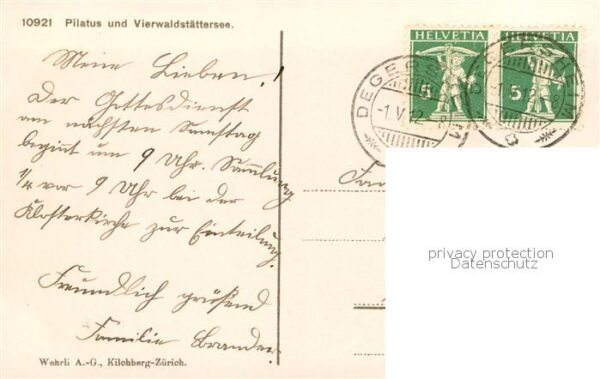 10921 Pilatus und Vierwaldstättersee.
HELVETIA HELVETIA
5 5
DEGERSHEIM
-1.V.12
Meine Lieben!
Der Gottesdienst
am nächsten Samstag
beginnt um 9 Uhr. Sammlung
1/4 vor 9 Uhr bei der
Klosterkirche zur Einteilung.
Freundlich grüßend
Familie Brander.
Fam
privacy protection
Datenschutz
Wehrli A.-G., Kilchberg-Zürich.